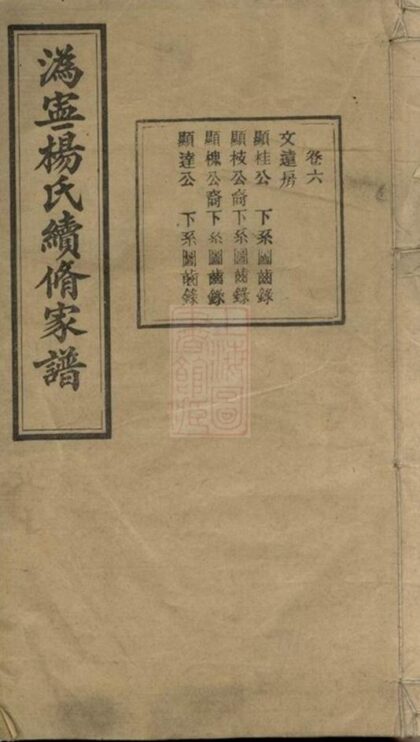 溈寧楊氏續脩家譜
卷六
文遠房
顯桂公 下系圖齒錄
顯枝公裔下系圖齒錄
顯槐公裔下系圖齒錄
顯達公 下系圖齒錄